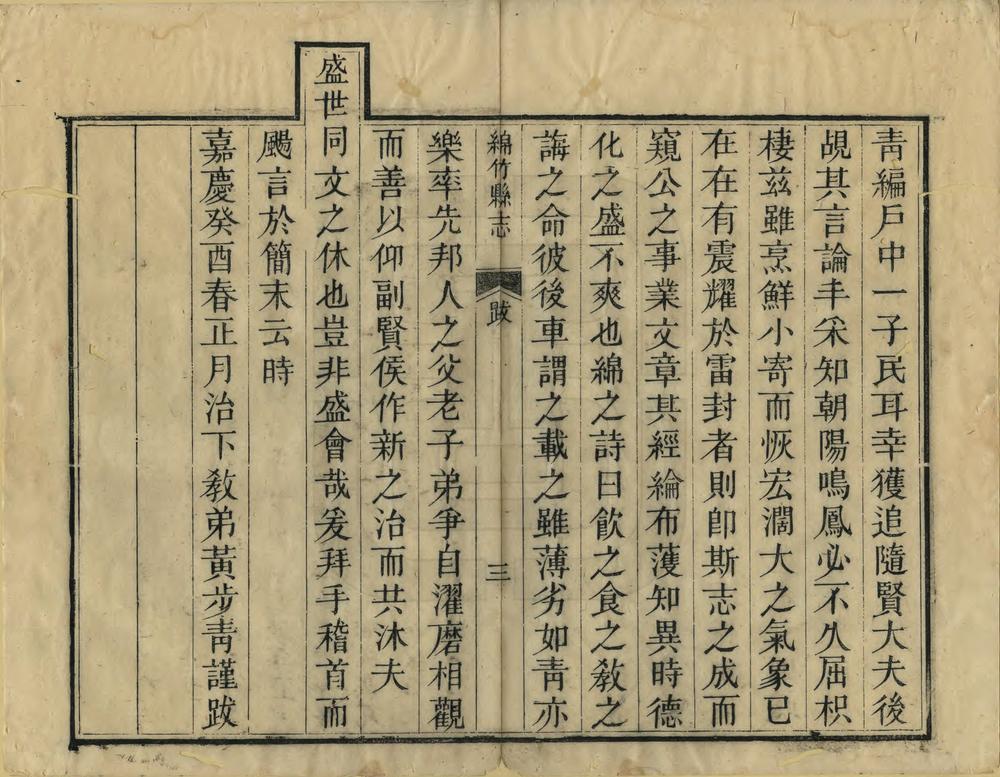 青編戶中一子民耳幸獲追隨賢大夫後
覘其言論丰采知朝陽鳴鳳必不久屈枳
棲茲雖烹鮮小寄而恢宏濶大之氣象已
在在有震耀於雷封者則卽斯志之成而
窺公之事業文章其經綸布濩知異時德
化之盛不爽也綿之詩曰飲之食之敎之
誨之命彼後車謂之載之雖薄劣如靑亦
綿竹縣志 跋 三
樂率先邦人之父老子弟爭自濯磨相觀
而善以仰副賢侯作新之治而共沐夫
盛世同文之休也豈非盛會哉爰拜手稽首而
颺言於簡末云時
嘉慶癸酉春正月治下敎弟黃步靑謹跋